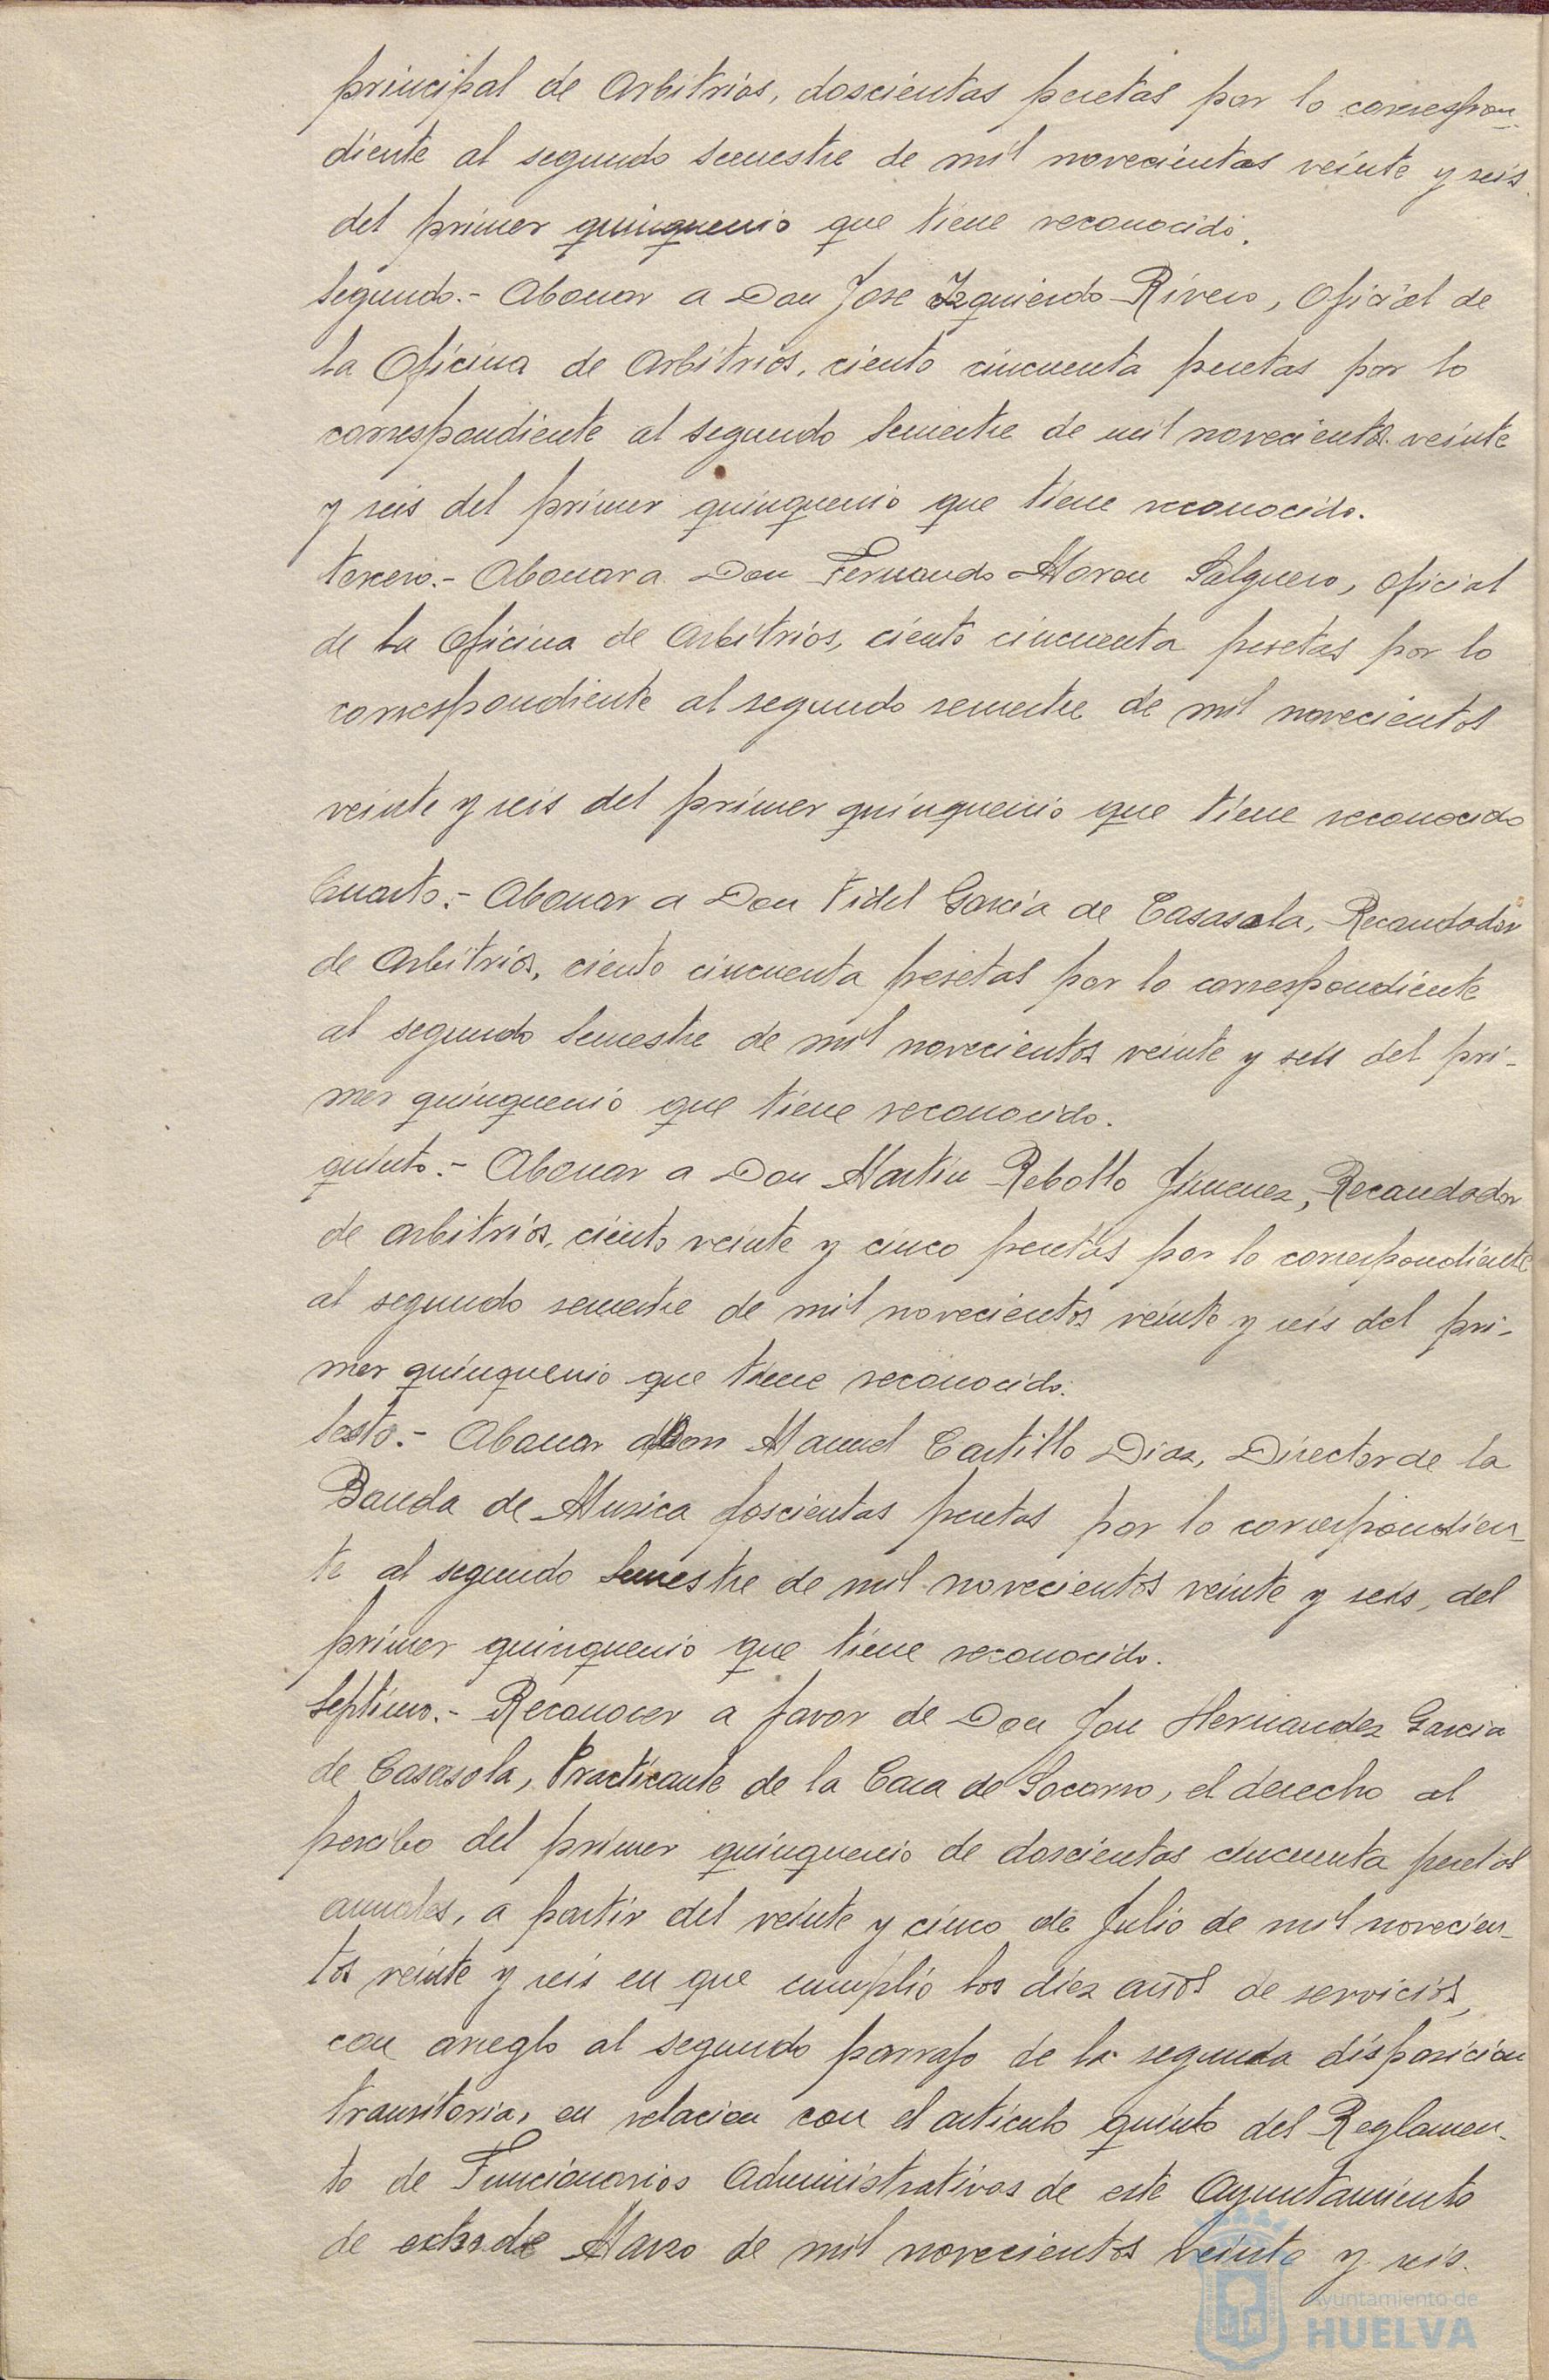 principal de Arbitrios, doscientas pesetas por lo correspon-
diente al segundo semestre de mil novecientas veinte y seis
del primer quinquenio que tiene reconocido.
Segundo.- Abonar a Don Jose Izquierdo Rivero, Oficial de
la Oficina de Arbitrios, ciento cincuenta pesetas por lo
correspondiente al segundo semestre de mil novecientos veinte
y seis del primer quinquenio que tiene reconocido.
tercero.- Abonar a Don Fernando Moron Salguero, Oficial
de la Oficina de Arbitrios, ciento cincuenta pesetas por lo
correspondiente al segundo semestre de mil novecientos
veinte y seis del primer quinquenio que tiene reconocido
Cuarto.- Abonar a Don Fidel Garcia de Casasola, Recaudador
de Arbitrios, ciento cincuenta pesetas por lo correspondiente
al segundo semestre de mil novecientos veinte y seis del pri-
mer quinquenio que tiene reconocido.
quinto.- Abonar a Don Martin Rebollo Jimenez, Recaudador
de arbitrios, ciento veinte y cinco pesetas por lo correspondiente
al segundo semestre de mil novecientos veinte y seis del pri-
mer quinquenio que tiene reconocido.
Sesto.- Abonar a Don Manuel Castillo Diaz, Director de la
Banda de Musica doscientas pesetas por lo correspondien-
te al segundo semestre de mil novecientos veinte y seis, del
primer quinquenio que tiene reconocido.
Septimo.- Reconocer a favor de Don Jose Hernandez Garcia
de Casasola, Practicante de la Casa de Socorro, el derecho al
percibo del primer quinquenio de doscientas cincuenta pesetas
anuales, a partir del veinte y cinco de Julio de mil novecien-
tos veinte y seis en que cumplio los diez años de servicios,
con arreglo al segundo parrafo de la segunda disposicion
transitoria, en relacion con el articulo quinto del Reglamen-
to de Funcionarios Administrativos de este Ayuntamiento
de ocho de Marzo de mil novecientos veinte y seis.
Ayuntamiento de
HUELVA